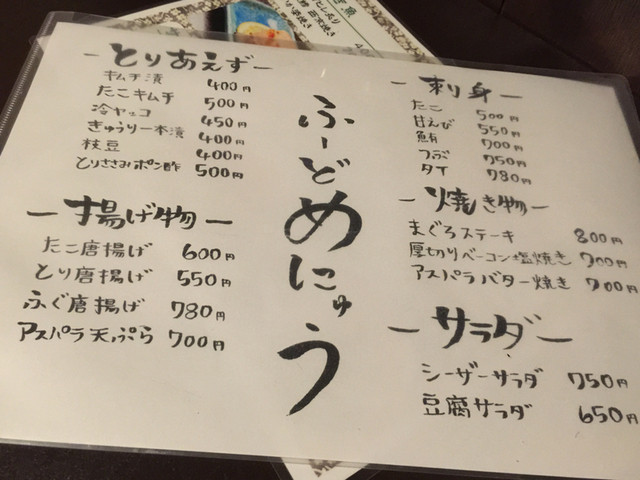 ふーどめにゅう
ーとりあえずー
キムチ漬 400円
たこキムチ 500円
冷ヤッコ 450円
きゅうり一本漬 400円
枝豆 400円
とりささみポン酢 500円
ー揚げ物ー
たこ唐揚げ 600円
とり唐揚げ 550円
ふぐ唐揚げ 780円
アスパラ天ぷら 700円
ー刺身ー
たこ 500円
甘えび 550円
鮪 700円
つぶ 750円
タイ 780円
ー焼き物ー
まぐろステーキ 800円
厚切りベーコン塩焼き 700円
アスパラバター焼き 700円
ーサラダー
シーザーサラダ 750円
豆腐サラダ 650円